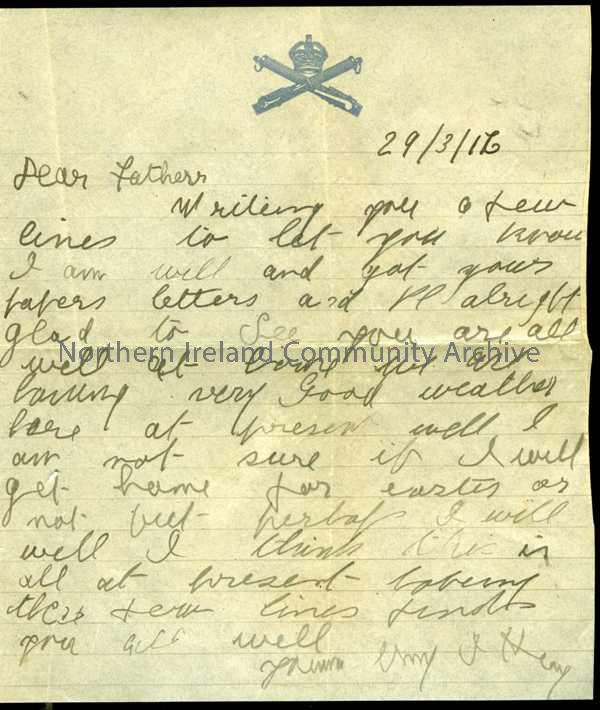 29/3/16
Dear Fathers
Writing you a few
lines to let you know
I am well and got yours
papers letters and P.C alright
glad to See you are all
well at home we are
Northern Ireland Community Archive
having very Good weather
here at present well I
am not sure if I will
get home for easter or
not but perhaps I will
well I think this is
all at present hoping
thes few lines finds
you all well
yours Wm J